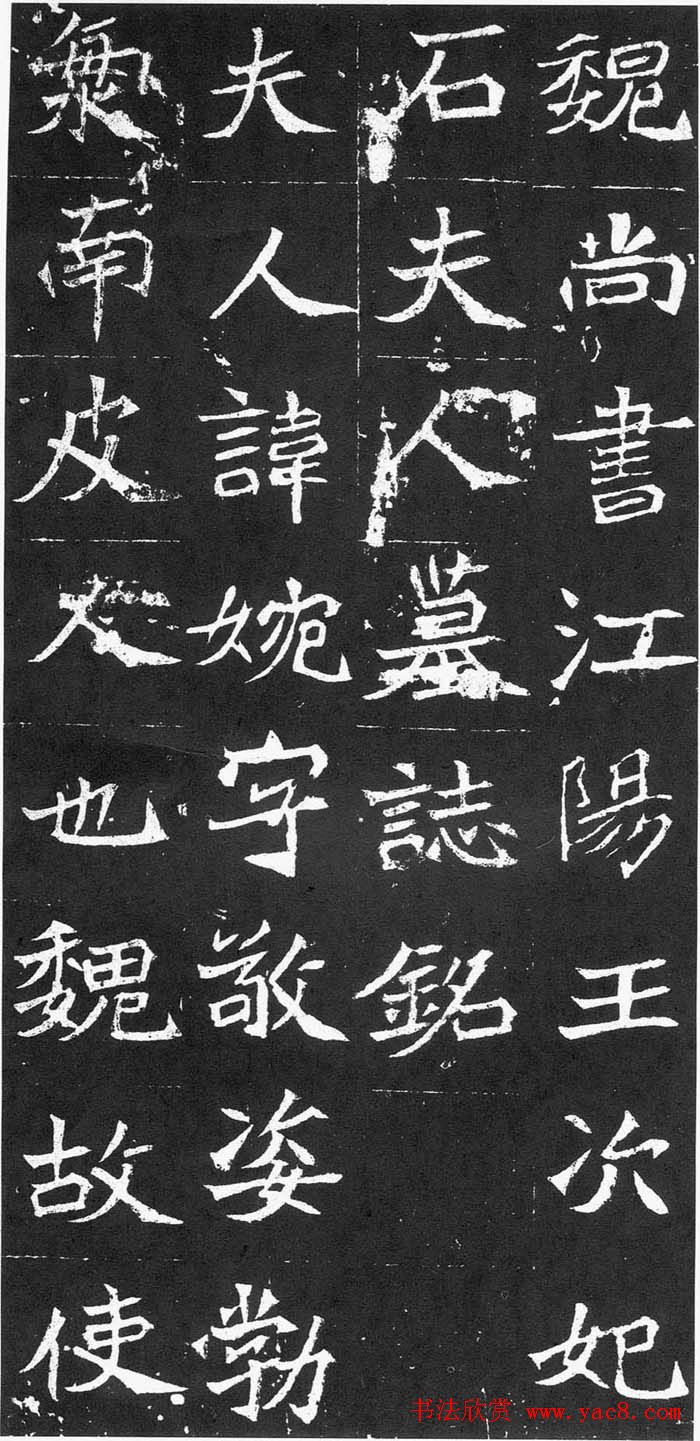 魏尚書江陽王次妃
石夫人墓誌銘
夫人諱婉字敬姿勃
海南皮人也魏故使
书法欣赏 www.yac8.com